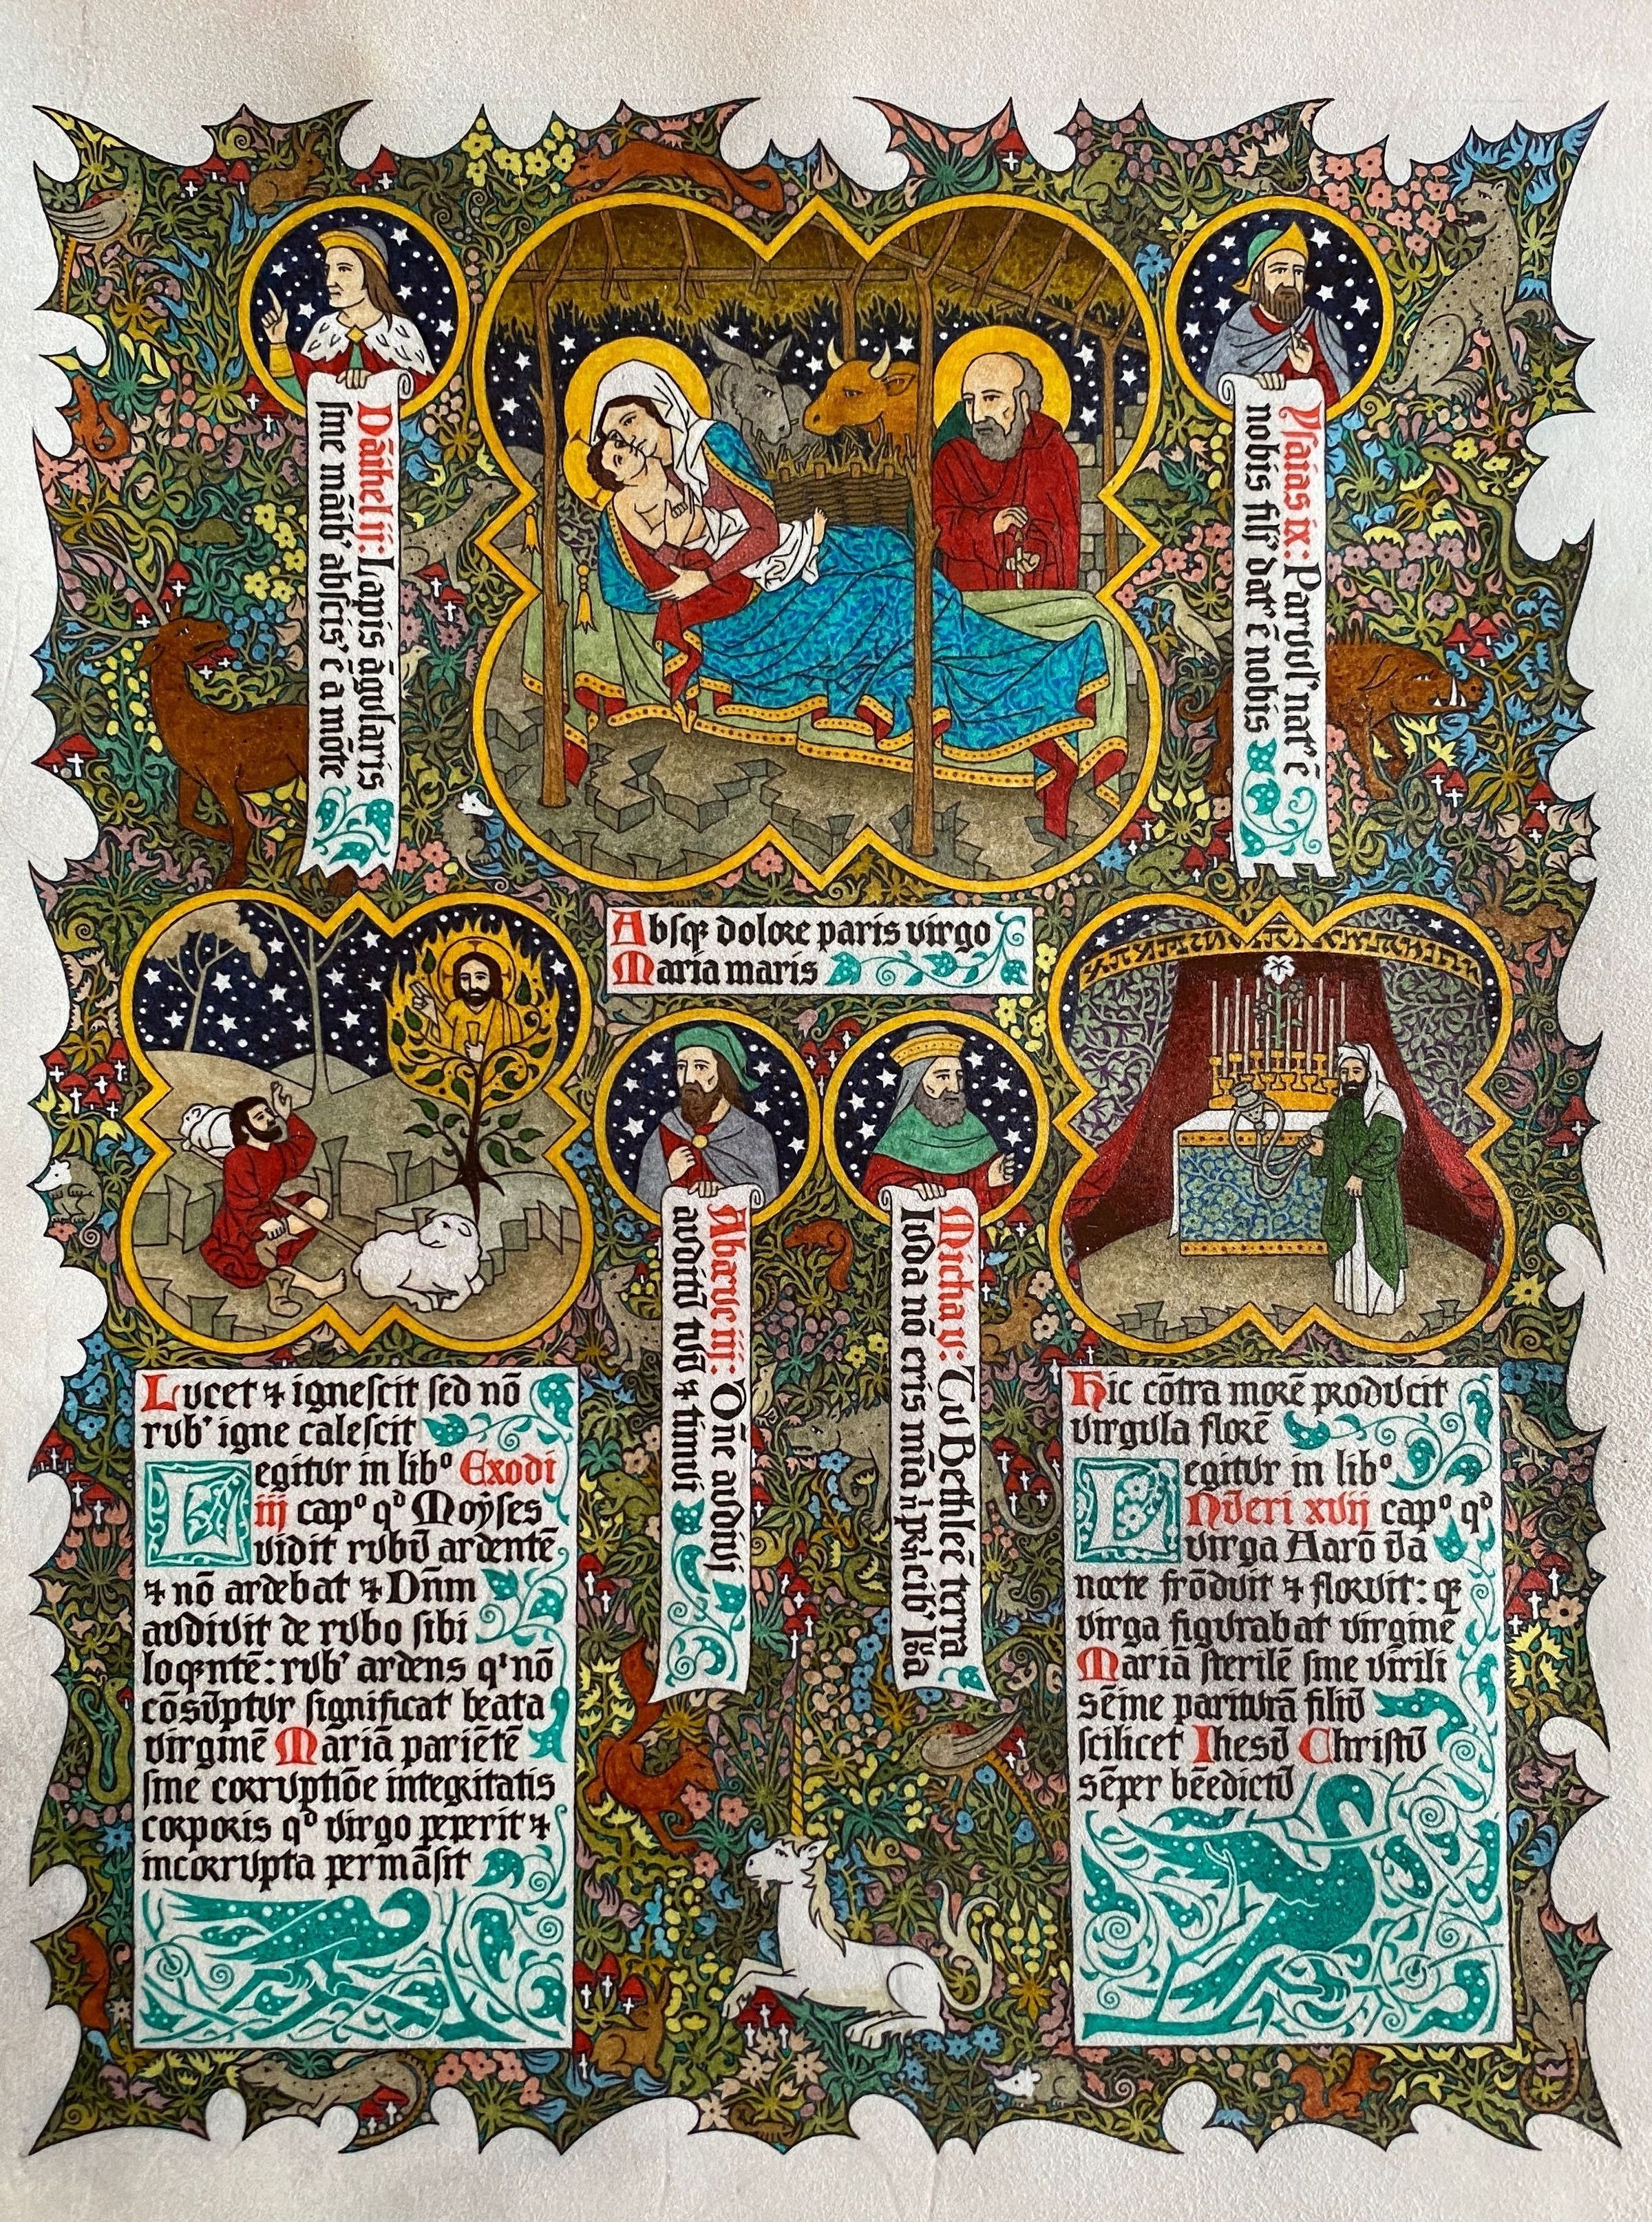 Dāihel ij: Lapis āgolaris
ſine māib' abſcis' ē a mōte
Yſaias ix: Parvul' nat' ē
nobis fili' dat' ē nobis
Absqꝫ dolore paris virgo
Maria maris
Abacuc iij: Dn̄e audivi
auditū tuū ⁊ timui
Micha v: Tu Bethleē terra
Iuda nō eris mīa ī prīcib' Iuda
Lucet ⁊ igneſcit ſed nō
rub' igne caleſcit
Legitur in libᵒ Exodi
iij capᵒ qᵈ Moyſes
vidit rubū ardentē
⁊ nō ardebat ⁊ Dn̄m
audivit de rubo ſibi
loqꝫntē: rub' ardens qⁱ nō
cōsūptur ſignificat beatā
virginē Mariā pariētē
ſine corruptiōe integritatis
corporis qᵈ virgo peperit ⁊
incorrupta permāſit
Hic cōtra morē producit
virgula florē
Legitur in libᵒ
Nūeri xvij capᵒ qᵈ
virga Aarō ūa
nocte frōduit ⁊ floruit: qꝫ
virga figurabat virginē
Mariā ſterilē ſine virili
sēine parituā filiū
ſcilicet Iheſū Chriſtū
sēper bēedictū